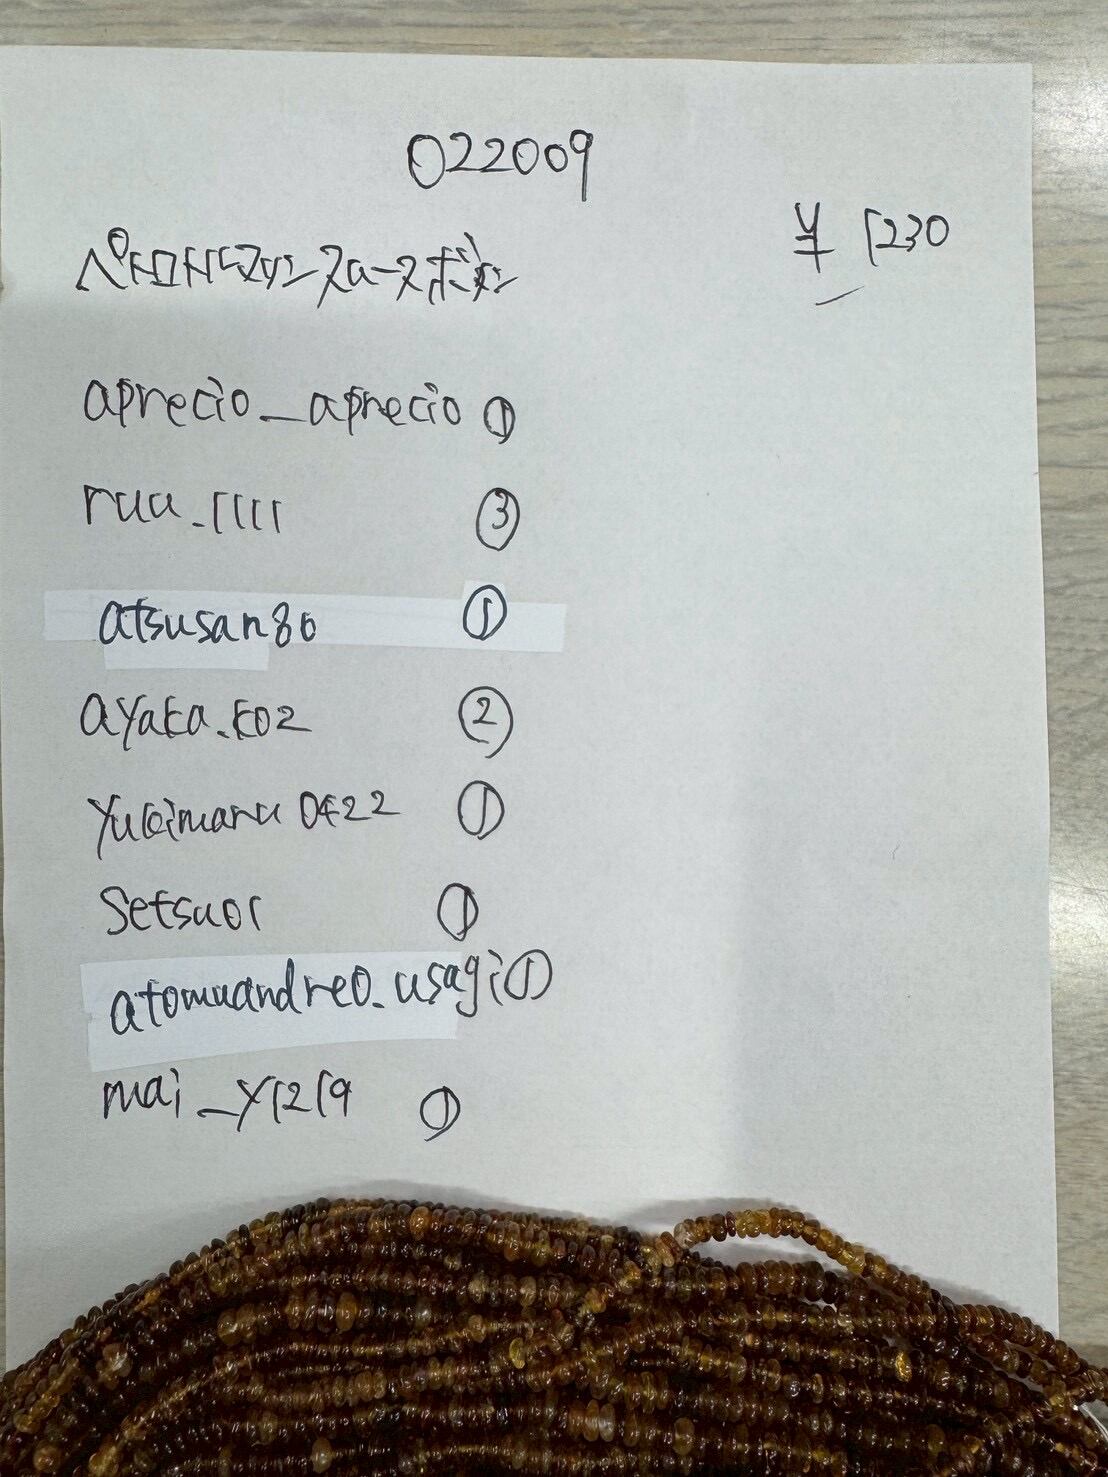 022009
¥ 1230
ペトロトルマリン スムース ボタン
aprecio_aprecio ①
ruu_1111 ③
atsusan80 ①
ayaka.k02 ②
yukimaru0422 ①
Setsuor ①
atomuandreo_usagi ①
mai_y1219 ①